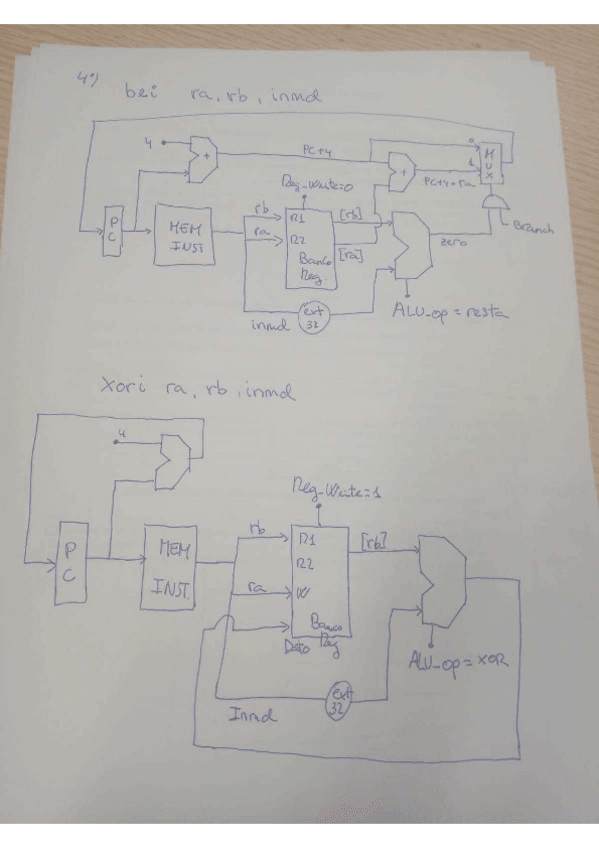 4º)
bei ra, rb, inmd
4
+
PC+4
+
0
1
MUX
PC+4+ra
Branch
PC
MEM
INST
rb
ra
Reg_Write=0
R1
R2
Banco
Reg.
[rb]
[ra]
zero
inmd
ext
32
ALU_op = resta
xori ra, rb, inmd
4
PC
MEM
INST.
rb
ra
Reg_Write=1
R1
R2
W
Banco
Reg
Dato
[rb]
ALU_op = XOR
Inmd
ext
32